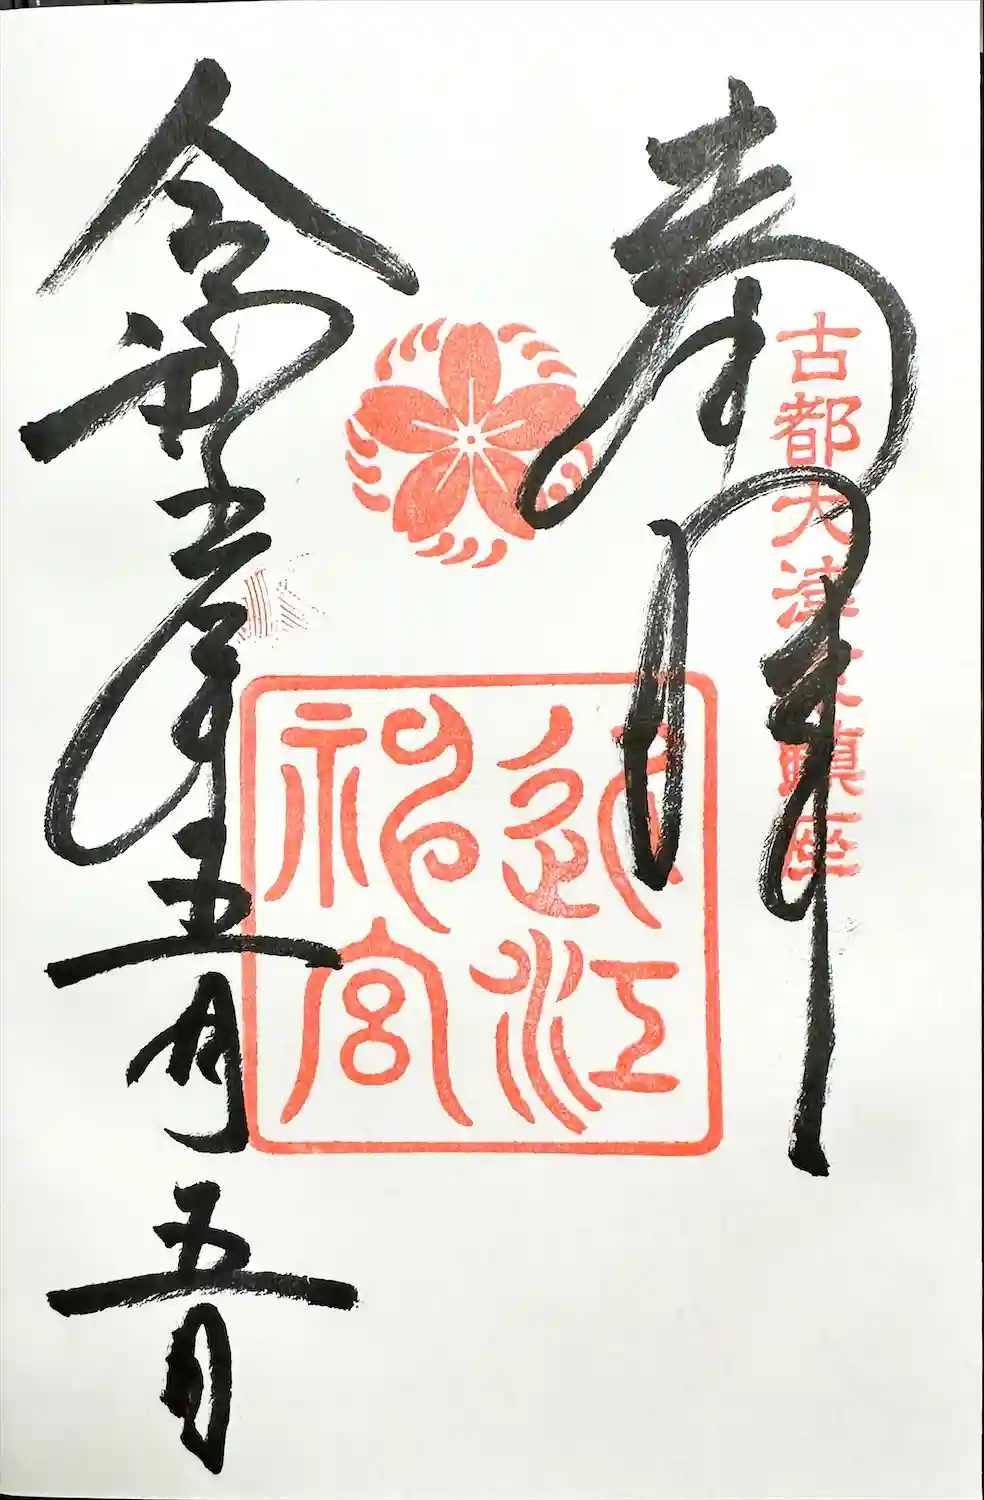 奉拝
古都大津京鎮座
近江
神宮
令和年五月五日